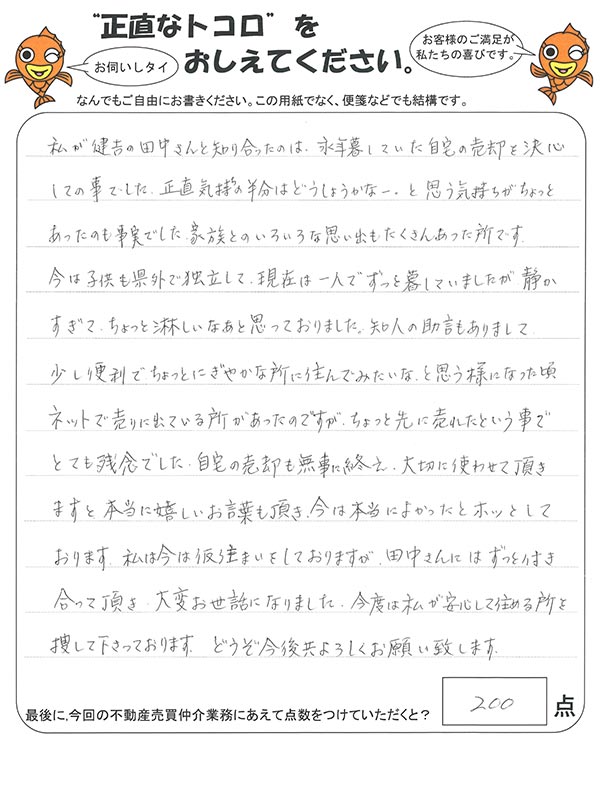 “正直なトコロ”を
おしえてください。
お伺いしタイ
お客様のご満足が
私たちの喜びです。
なんでもご自由にお書きください。この用紙でなく、便箋などでも結構です。
私が建吉の田中さんと知り合ったのは、永年暮していた自宅の売却を決心
しての事でした。正直気持の半分はどうしょうかなー。と思う気持ちがちょっと
あったのも事実でした。家族とのいろいろな思い出もたくさんあった所です。
今は子供も県外で独立して、現在は一人でずっと暮していましたが静か
すぎて、ちょっと淋しいなあと思っておりました。知人の助言もありまして、
少しり便利でちょっとにぎやかな所に住んでみたいな、と思う様になった頃
ネットで売りに出ている所があったのですが、ちょっと先に売れたという事で
とても残念でした。自宅の売却も無事に終え、大切に使わせて頂き
ますと本当に嬉しいお言葉も頂き、今は本当によかったとホッとして
おります。私は今は仮住まいをしておりますが、田中さんにはずっと付き
合って頂き、大変お世話になりました。今度は私が安心して住める所を
捜して下さっております。どうぞ今後共よろしくお願い致します。
最後に、今回の不動産売買仲介業務にあえて点数をつけていただくと？ 200 点